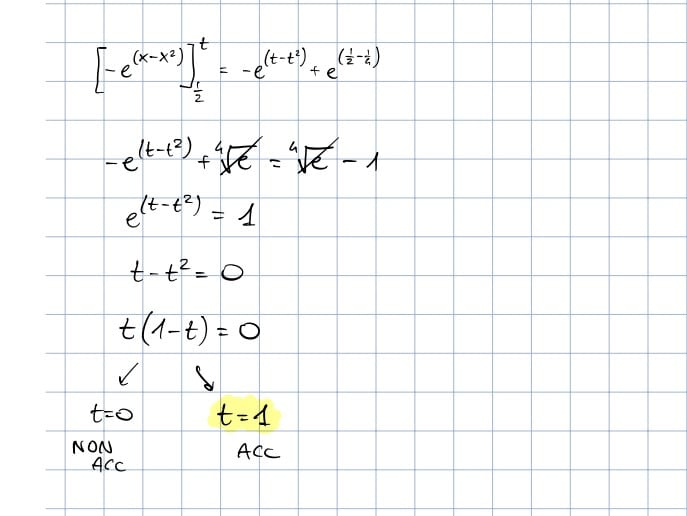 [-e^(x-x²)]_{1/2}^{t} = -e^(t-t²) + e^(1/2-1/4)
-e^(t-t²) + ⁴√e = ⁴√e - 1
e^(t-t²) = 1
t - t² = 0
t(1-t) = 0
↙ ↘
t=0 t=1
NON ACC
ACC